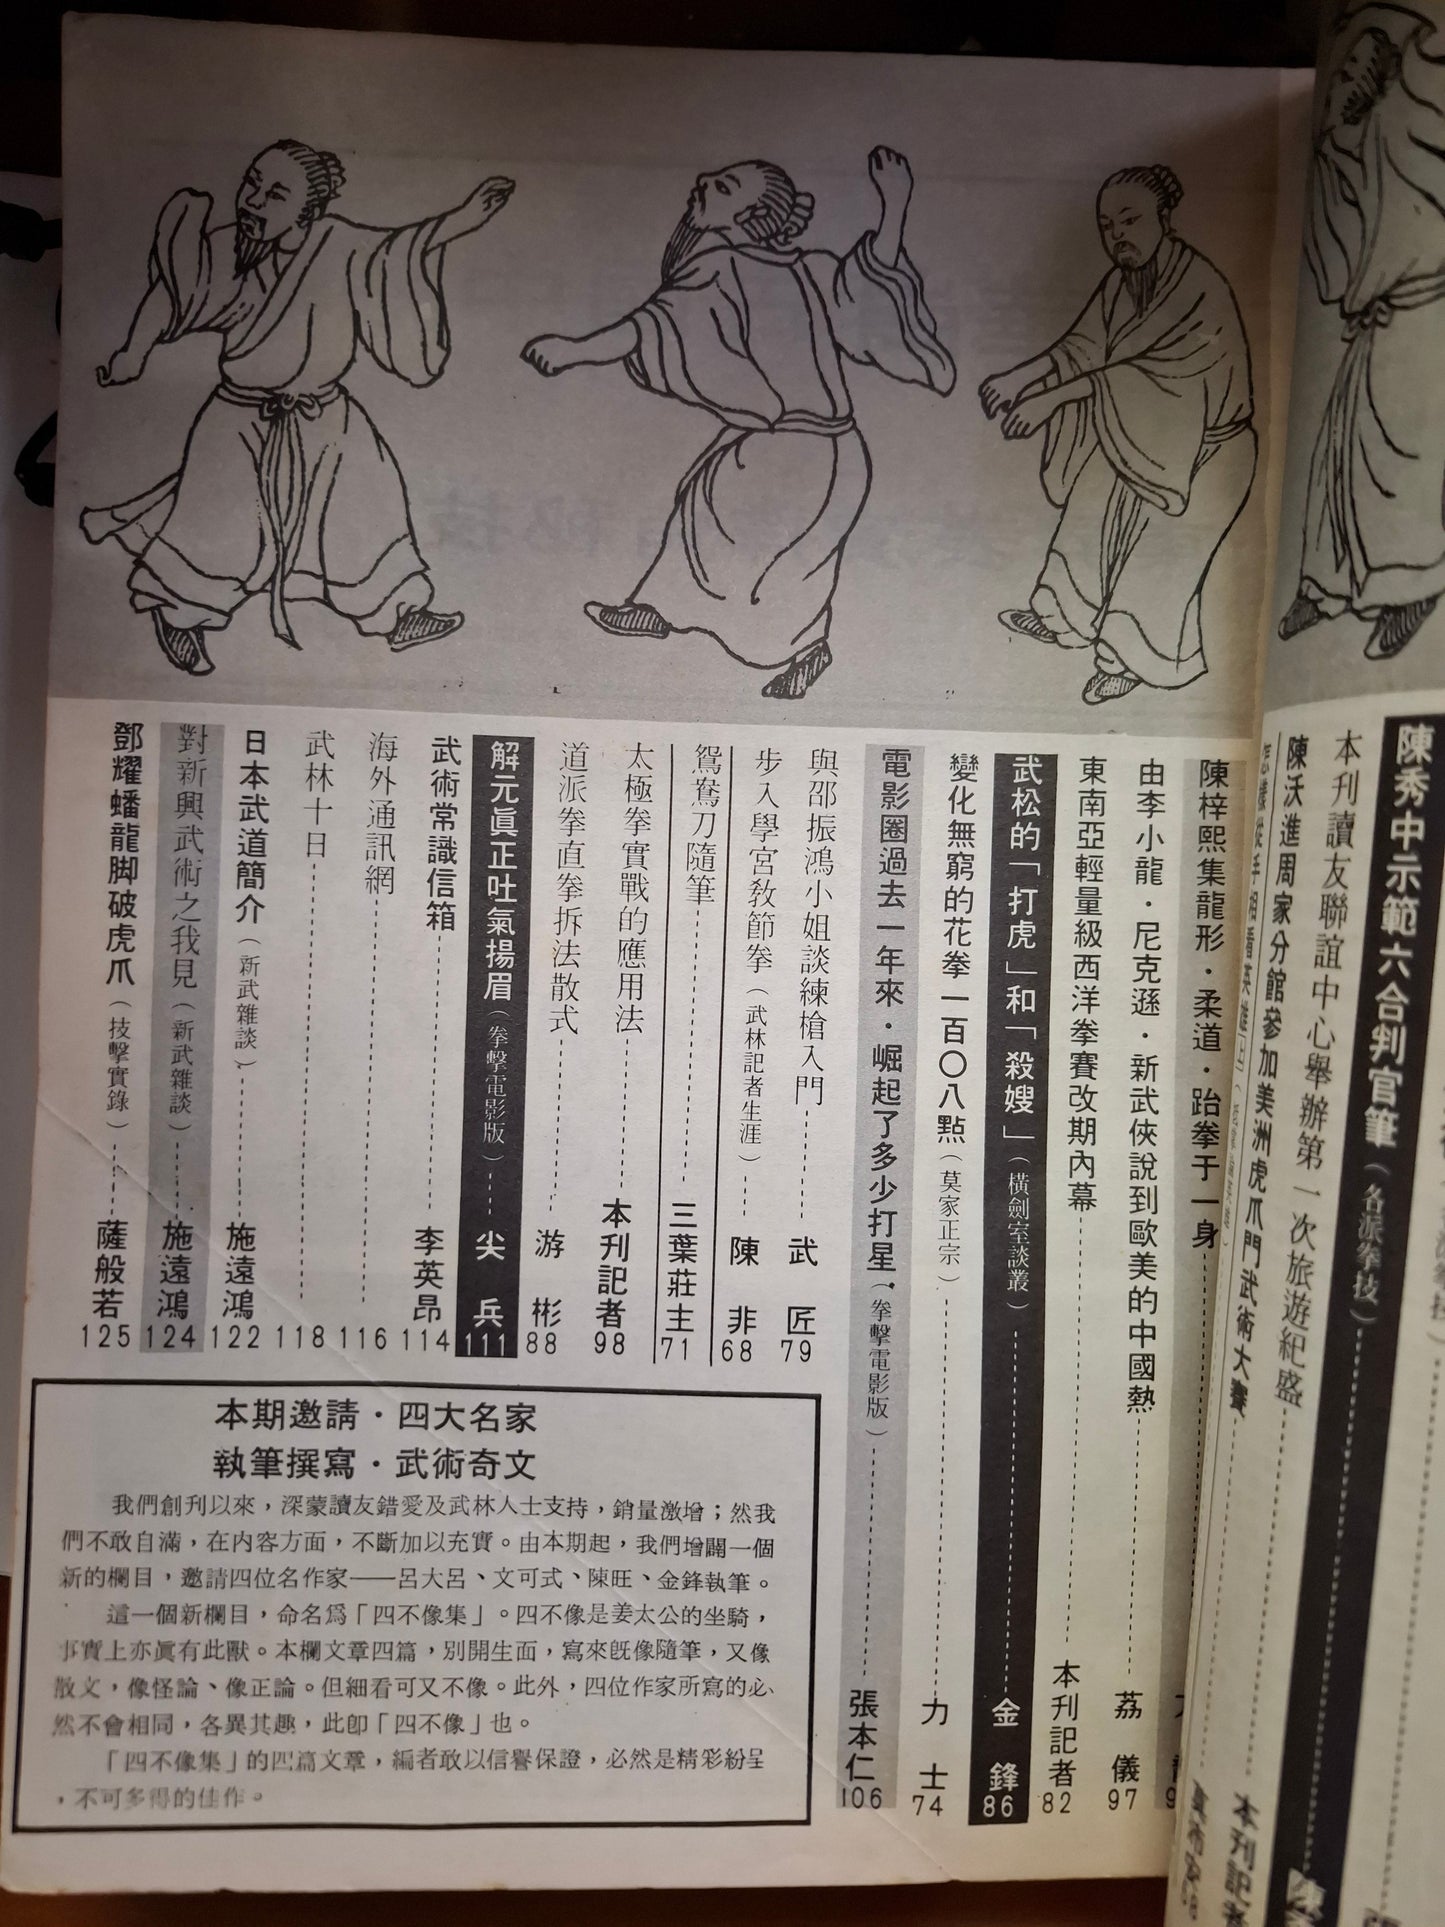 陳秀中示範六合判官筆（各派拳技）
本刊讀友聯誼中心舉辦第一次旅遊紀盛
陳沃進周家分館參加美洲虎爪門武術大賽 本刊記者
陳梓熙集龍形・柔道・跆拳于一身
由李小龍・尼克遜・新武俠說到歐美的中國熱 荔儀 97
東南亞輕量級西洋拳賽改期內幕 本刊記者 82
武松的「打虎」和「殺嫂」（橫劍室談叢） 金鋒 86
變化無窮的花拳一百〇八點（莫家正宗） 力士 74
電影圈過去一年來・崛起了多少打星（拳擊電影版） 張本仁 106
與邵振鴻小姐談練槍入門 武匠 79
步入學宮教節拳（武林記者生涯） 陳非 68
鴛鴦刀隨筆 三葉莊主 71
太極拳實戰的應用法 本刊記者 98
道派拳直拳拆法散式 游彬 88
解元眞正吐氣揚眉（拳擊電影版） 尖兵 111
武術常識信箱 李英昂 114
海外通訊網 116
武林十日 118
日本武道簡介（新武雜談） 施遠鴻 122
對新興武術之我見（新武雜談） 施遠鴻 124
鄧耀蟠龍脚破虎爪（技擊實錄） 薩般若 125
本期邀請・四大名家
執筆撰寫・武術奇文
我們創刊以來，深蒙讀友錯愛及武林人士支持，銷量激增；然我
們不敢自滿，在內容方面，不斷加以充實。由本期起，我們增闢一個
新的欄目，邀請四位名作家——呂大呂、文可式、陳旺、金鋒執筆。
這一個新欄目，命名爲「四不像集」。四不像是姜太公的坐騎，
事實上亦眞有此獸。本欄文章四篇，別開生面，寫來旣像隨筆，又像
散文，像怪論、像正論。但細看可又不像。此外，四位作家所寫的必
然不會相同，各異其趣，此卽「四不像」也。
「四不像集」的四篇文章，編者敢以信譽保證，必然是精彩紛呈
，不可多得的佳作。